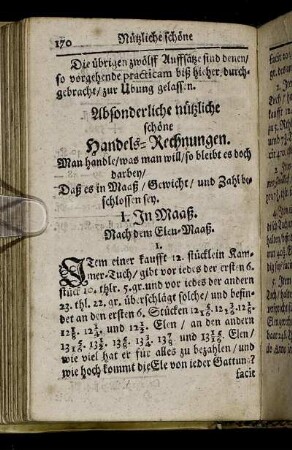 170 Nützliche schöne
Die übrigen zwölff Auffsätze sind denen/
so vorgehende practicam biß hieher durch-
gebracht/ zur Übung gelassen.
Absonderliche nützliche
schöne
Handels-Rechnungen.
Man handle/ was man will/ so bleibt es doch
darbey/
Daß es in Maaß/ Gewicht/ und Zahl be-
schlossen sey.
1. In Maaß.
Nach dem Elen-Maaß.
1.
ITem einer kaufft 12. stücklein Kam-
mer-Tuch/ gibt vor iedes der ersten 6.
stück 10. thlr. 5. gr. und vor iedes der andern
23. thl. 22. gr. überschlägt solche/ und befin-
det an den ersten 6. Stücken
Elen/ an den andern
und Elen/
wie viel hat er für alles zu bezahlen/ und
wie hoch kommt die Ele von ieder Gattung?
facit